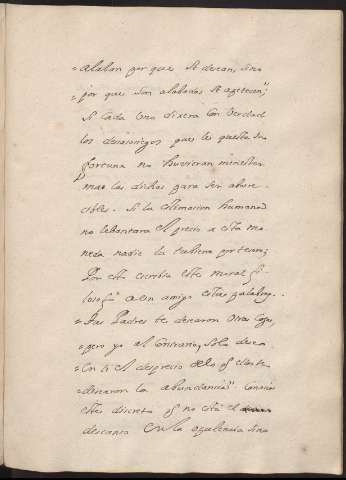 "alaban porque se desean, sino
"porque son alabadas se apetecen";
Si cada uno dixera con verdad
los desasosiegos que le questa su
fortuna no huvieran menester
mas las dichas para ser aborre-
cibles. Si la estimacion humana
no lebantara el precio a esta mo
neda nadie la tubiera por
Por esto escribia este moral fi-
losofo a un amigo estas palabras.
"Tus Padres te desearon otras cosas,
"pero yo al contrario, solo deseo
"en ti el desprecio de lo q ellos te
"desearon la abundancia". Conocia
este discreto q no está el
descanso en la opulencia sino